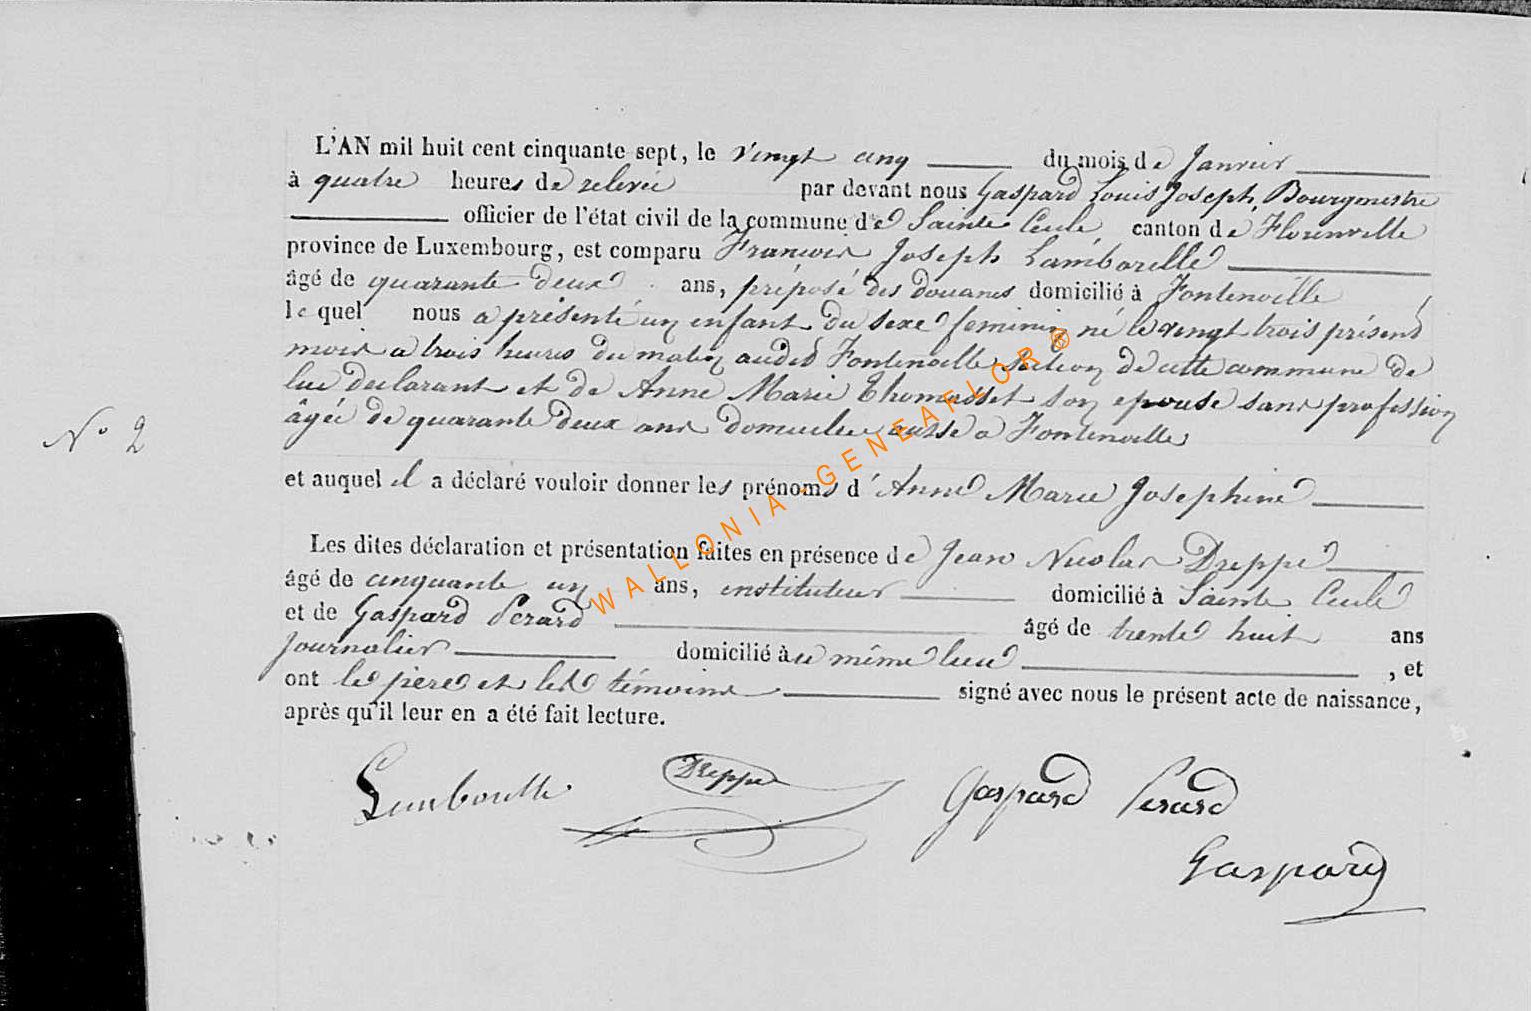 L'AN mil huit cent cinquante sept, le vingt cinq du mois de Janvier
à quatre heures de relevée par devant nous Gaspard Louis Joseph, Bourgmestre
officier de l'état civil de la commune de Sainte Cecile canton de Florenville
province de Luxembourg, est comparu Francois Joseph Lamborelle
âgé de quarante deux ans, préposé des douanes domicilié à Fontenoille
le quel nous a présenté un enfant du sexe feminin né le vingt trois présent
mois a trois heures du matin audit Fontenoille section de cette commune de
lui declarant et de Anne Marie Thomasset son epouse sans profession
âgée de quarante deux ans domiciliée aussi a Fontenoille
N° 2
et auquel il a déclaré vouloir donner les prénoms d'Anne Marie Josephine
Les dites déclaration et présentation faites en présence de Jean Nicolas Dreppe
âgé de cinquante un ans, instituteur domicilié à Sainte Cecile
et de Gaspard Perard âgé de trente huit ans
journalier domicilié à ce même lieu , et
ont le père et les témoins signé avec nous le présent acte de naissance,
après qu'il leur en a été fait lecture.
Lamborelle Dreppe Gaspard Perard
Gaspard
WALLONIA-GENEAFLOR®